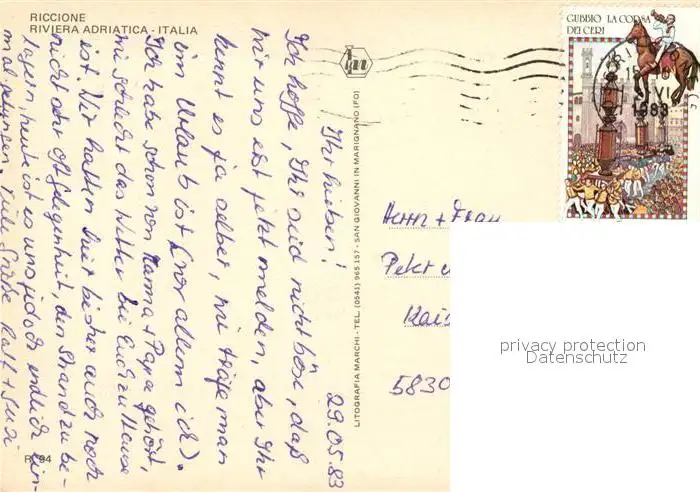 RICCIONE
RIVIERA ADRIATICA - ITALIA
29.05.83
Ihr Lieben!
Ich hoffe, Ihr seid nicht böse, daß
wir uns erst jetzt melden, aber Ihr
kennt es ja selber, wie träge man
im Urlaub ist (vor allem ich).
Ich habe schon von Mama + Papa gehört,
wie schlecht das Wetter bei Euch zu Hause
ist. Wir hatten hier bisher auch noch
nicht oft Gelegenheit, den Strand zu be-
lagern, heute ist es uns jedoch endlich ein-
mal gelungen. Viele Grüße Ralf + Susi
R. 94
LITOGRAFIA MARCHI - TEL. (0541) 965.157 - SAN GIOVANNI IN MARIGNANO (FO)
Herrn + Frau
Peter
Kais
5830
GUBBIO LA CORSA
DEI CERI
1983
privacy protection
Datenschutz